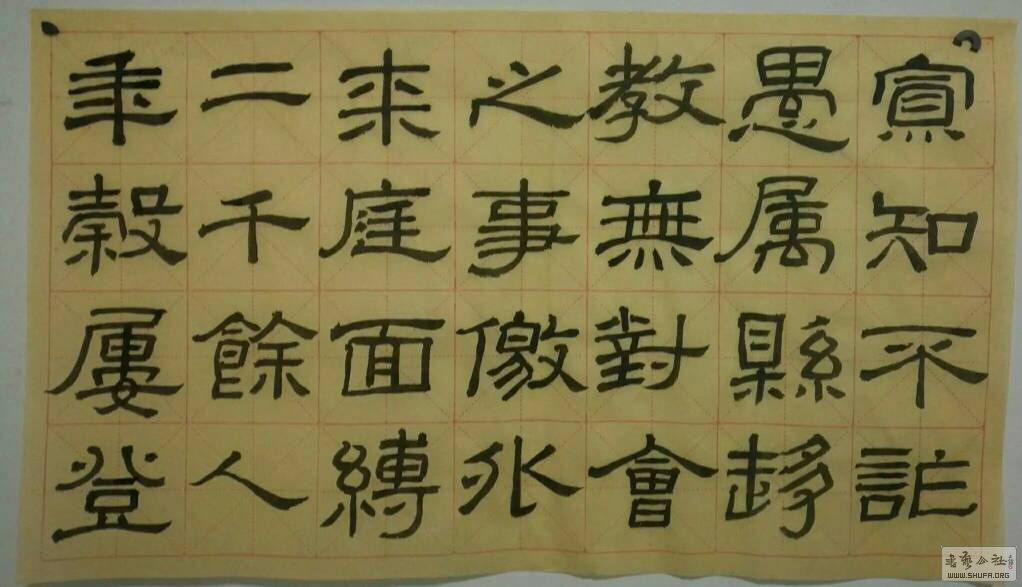 寡知不詐
愚属縣趍
教無對會
之事徼外
来庭面縛
二千餘人
年穀屢登
書藝公社
WWW.SHUFA.ORG